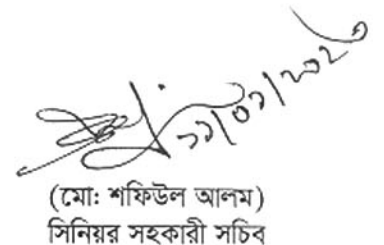 ২২/০১/২০২৬
(মো: শফিউল আলম)
সিনিয়র সহকারী সচিব